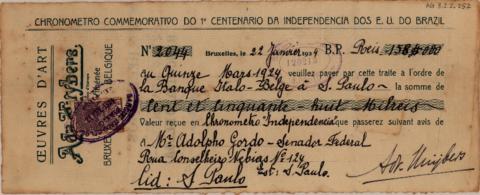 AG 3.2.2.252
CHRONOMETRO COMMEMORATIVO DO 1º CENTENARIO DA INDEPENDENCIA DOS E. U. DO BRAZIL
ŒUVRES D'ART
BRUXELLES BELGIQUE
Nº 2044 Bruxelles, le 22 Janvier 1924 B.P. Reis 158$000
au Quinze Mars 1924 veuillez payer par cette traite à l'ordre de
la Banque Italo-Belge à S. Paulo la somme de
Cent et Cinquante huit Milreis
Valeur reçue en Chronomètro Independencia que passerez suivant avis de
à Mr. Adolpho Gordo - Senador Federal
Rua Conselheiro Nebias Nº 124
Cid: S. Paulo Est: S. Paulo.
Ad. Huybers